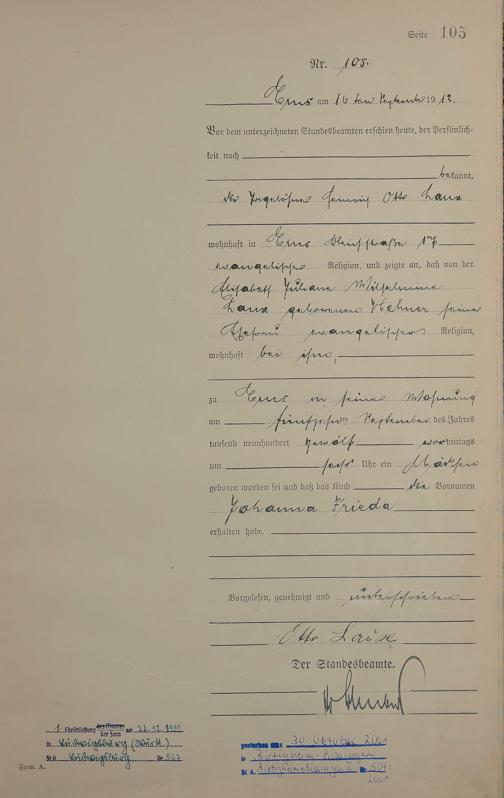 Seite 105
Nr. 105.
Ems am 16ten September 1912.
Vor dem unterzeichneten Standesbeamten erschien heute, der Persönlich-
keit nach
bekannt,
der Tagelöhner Heinrich Otto Laux
wohnhaft in Ems Bleichstraße 17
evangelischer Religion, und zeigte an, daß von der
Elisabeth Juliane Wilhelmine
Laux geborenen Hehner seiner
Ehefrau evangelischer Religion,
wohnhaft bei ihm,
zu Ems in seiner Wohnung
am fünfzehn September des Jahres
tausend neunhundert zwölf vormittags
um sechs Uhr ein Mädchen
geboren worden sei und daß das Kind die Vornamen
Johanna Frieda
erhalten habe.
Vorgelesen, genehmigt und unterschrieben
Otto Laux
Der Standesbeamte.
1. Eheschließung des Mannes am 22.12.
der Frau
in Ludwigsburg (Württ.)
St.A. Ludwigsburg Nr. 567
Form. A.
gestorben am: 30. Oktober 2001
in Bietigheim-Bissingen
St. A. Bietigheim-Bissingen Nr.
2001